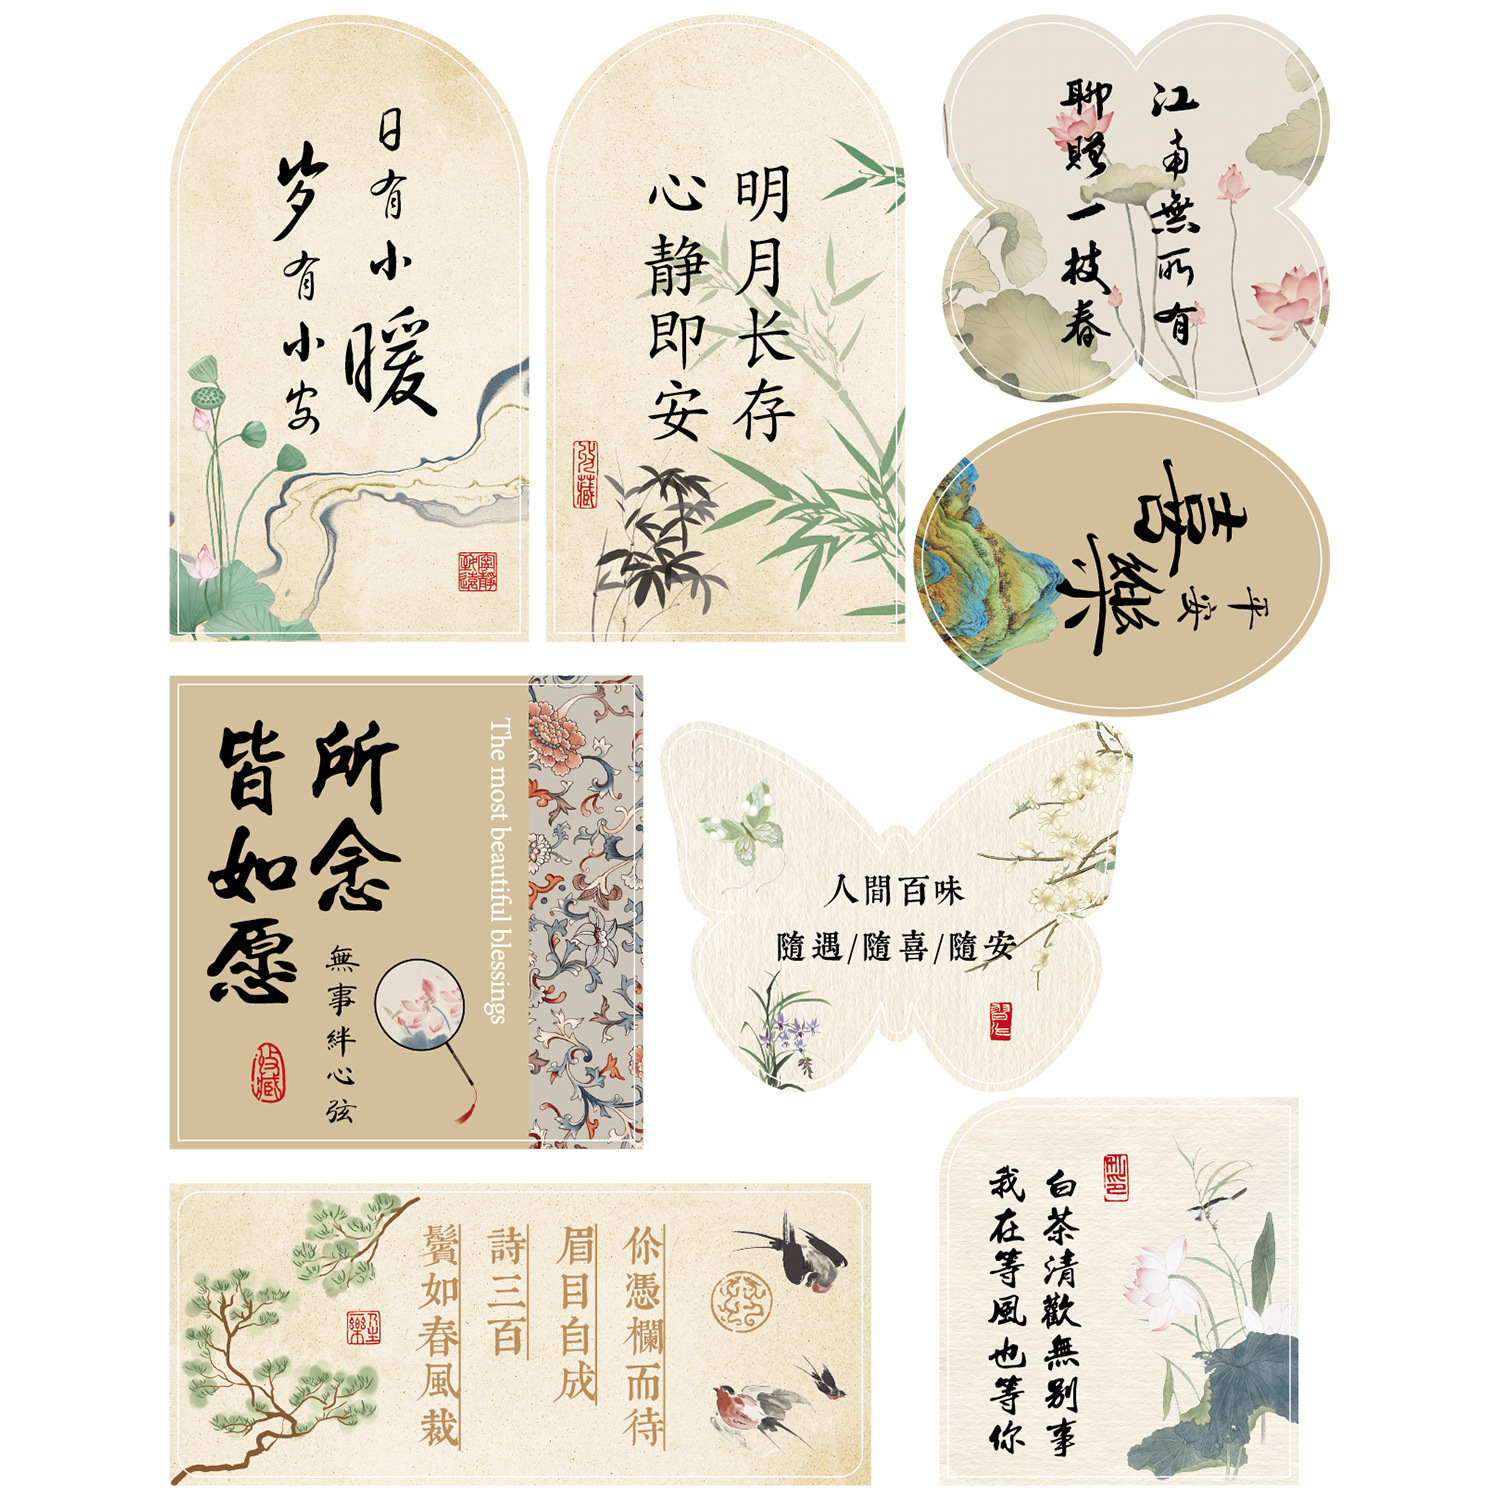 日有小暖
岁有小安
明月长存
心静即安
江南無所有
聊贈一枝春
喜樂
平安
所念
皆如愿
無事絆心弦
The most beautiful blessings
人間百味
隨遇/隨喜/隨安
伱憑欄而待
眉目自成
詩三百
鬢如春風裁
白茶清歡無别事
我在等風也等你